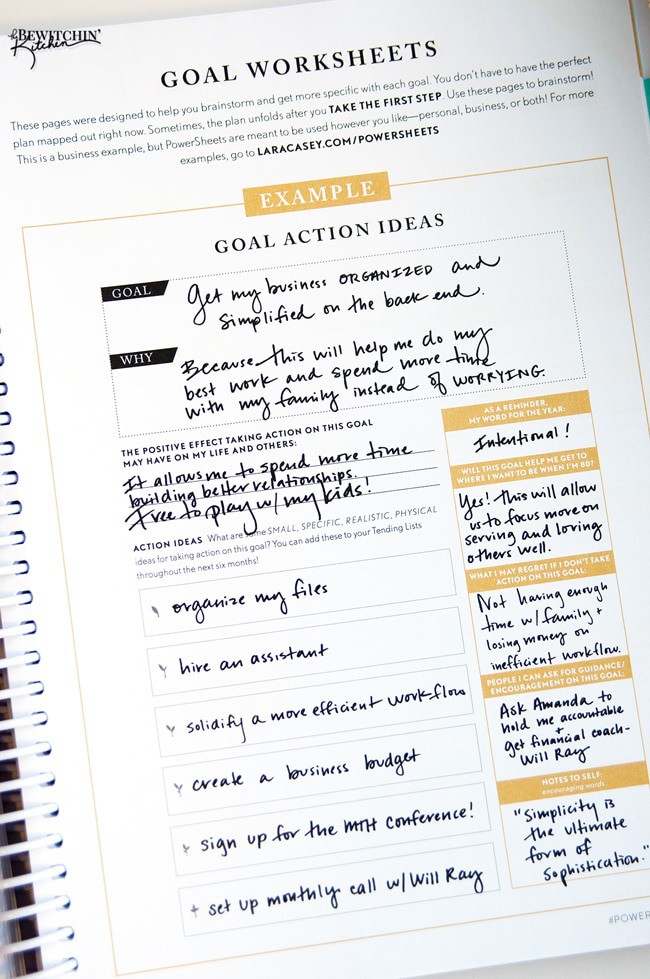 the BEWITCHIN'
Kitchen
GOAL WORKSHEETS
These pages were designed to help you brainstorm and get more specific with each goal. You don't have to have the perfect
plan mapped out right now. Sometimes, the plan unfolds after you TAKE THE FIRST STEP. Use these pages to brainstorm!
This is a business example, but PowerSheets are meant to be used however you like—personal, business, or both! For more
examples, go to LARACASEY.COM/POWERSHEETS
EXAMPLE
GOAL ACTION IDEAS
GOAL
Get my business ORGANIZED and
simplified on the back end.
WHY
Because this will help me do my
best work and spend more time
with my family instead of WORRYING.
THE POSITIVE EFFECT TAKING ACTION ON THIS GOAL
MAY HAVE ON MY LIFE AND OTHERS:
It allows me to spend more time
building better relationships.
Free to play w/ my kids!
ACTION IDEAS What are some SMALL, SPECIFIC, REALISTIC, PHYSICAL
ideas for taking action on this goal? You can add these to your Tending Lists
throughout the next six months!
organize my files
hire an assistant
solidify a more efficient workflow
create a business budget
sign up for the MTH conference!
+ set up monthly call w/ Will Ray
AS A REMINDER,
MY WORD FOR THE YEAR:
Intentional!
WILL THIS GOAL HELP ME GET TO
WHERE I WANT TO BE WHEN I'M 80?
Yes! This will allow
us to focus more on
serving and loving
others well.
WHAT I MAY REGRET IF I DON'T TAKE
ACTION ON THIS GOAL:
Not having enough
time w/ family +
losing money on
inefficient workflow.
PEOPLE I CAN ASK FOR GUIDANCE/
ENCOURAGEMENT ON THIS GOAL:
Ask Amanda to
hold me accountable
+
get financial coach-
Will Ray
NOTES TO SELF:
encouraging words
"Simplicity is
the ultimate
form of
sophistication."
#POWER